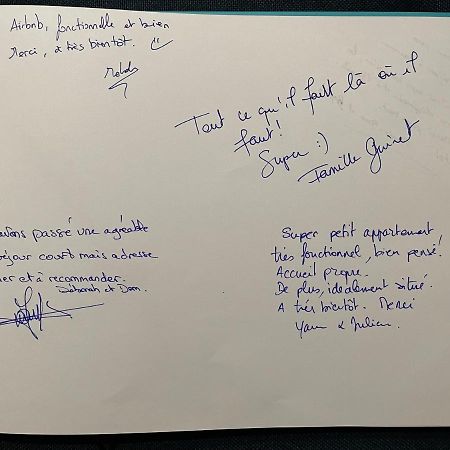 Airbnb, fonctionnelle et bien
Merci, à très bientôt.
Tout ce qu'il faut là où il
faut!
Super :)
Famille Guinet
avons passé une agréable
séjour court mais adresse
et à recommander.
Deborah et Dom.
Super petit appartement,
très fonctionnel, bien pensé!
Accueil propre.
De plus, idéalement situé.
A très bientôt. Merci
Yann & Julien.